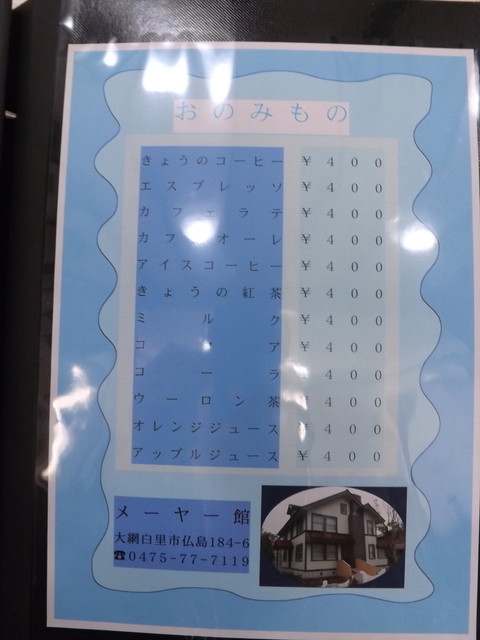 おのみもの
きょうのコーヒー ￥400
エスプレッソ ￥400
カフェラテ ￥400
カフェオーレ ￥400
アイスコーヒー ￥400
きょうの紅茶 ￥400
ミルク ￥400
ココア ￥400
コーラ ￥400
ウーロン茶 ￥400
オレンジジュース ￥400
アップルジュース ￥400
メーヤー館
大網白里市仏島184-6
☎0475-77-7119